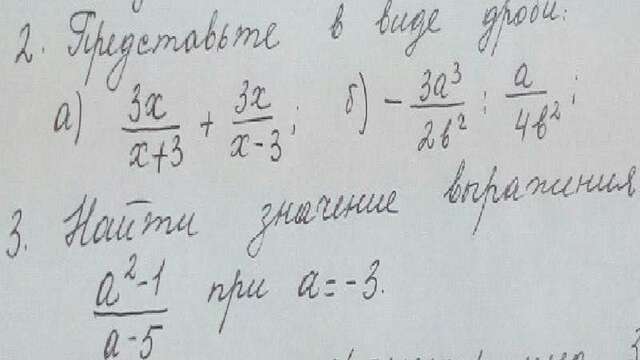 2. Представьте в виде дроби:
а) 3x/(x+3) + 3x/(x-3); б) - 3a³/2b² : a/4b²;
3. Найти значение выражения
(a²-1)/(a-5) при a=-3.